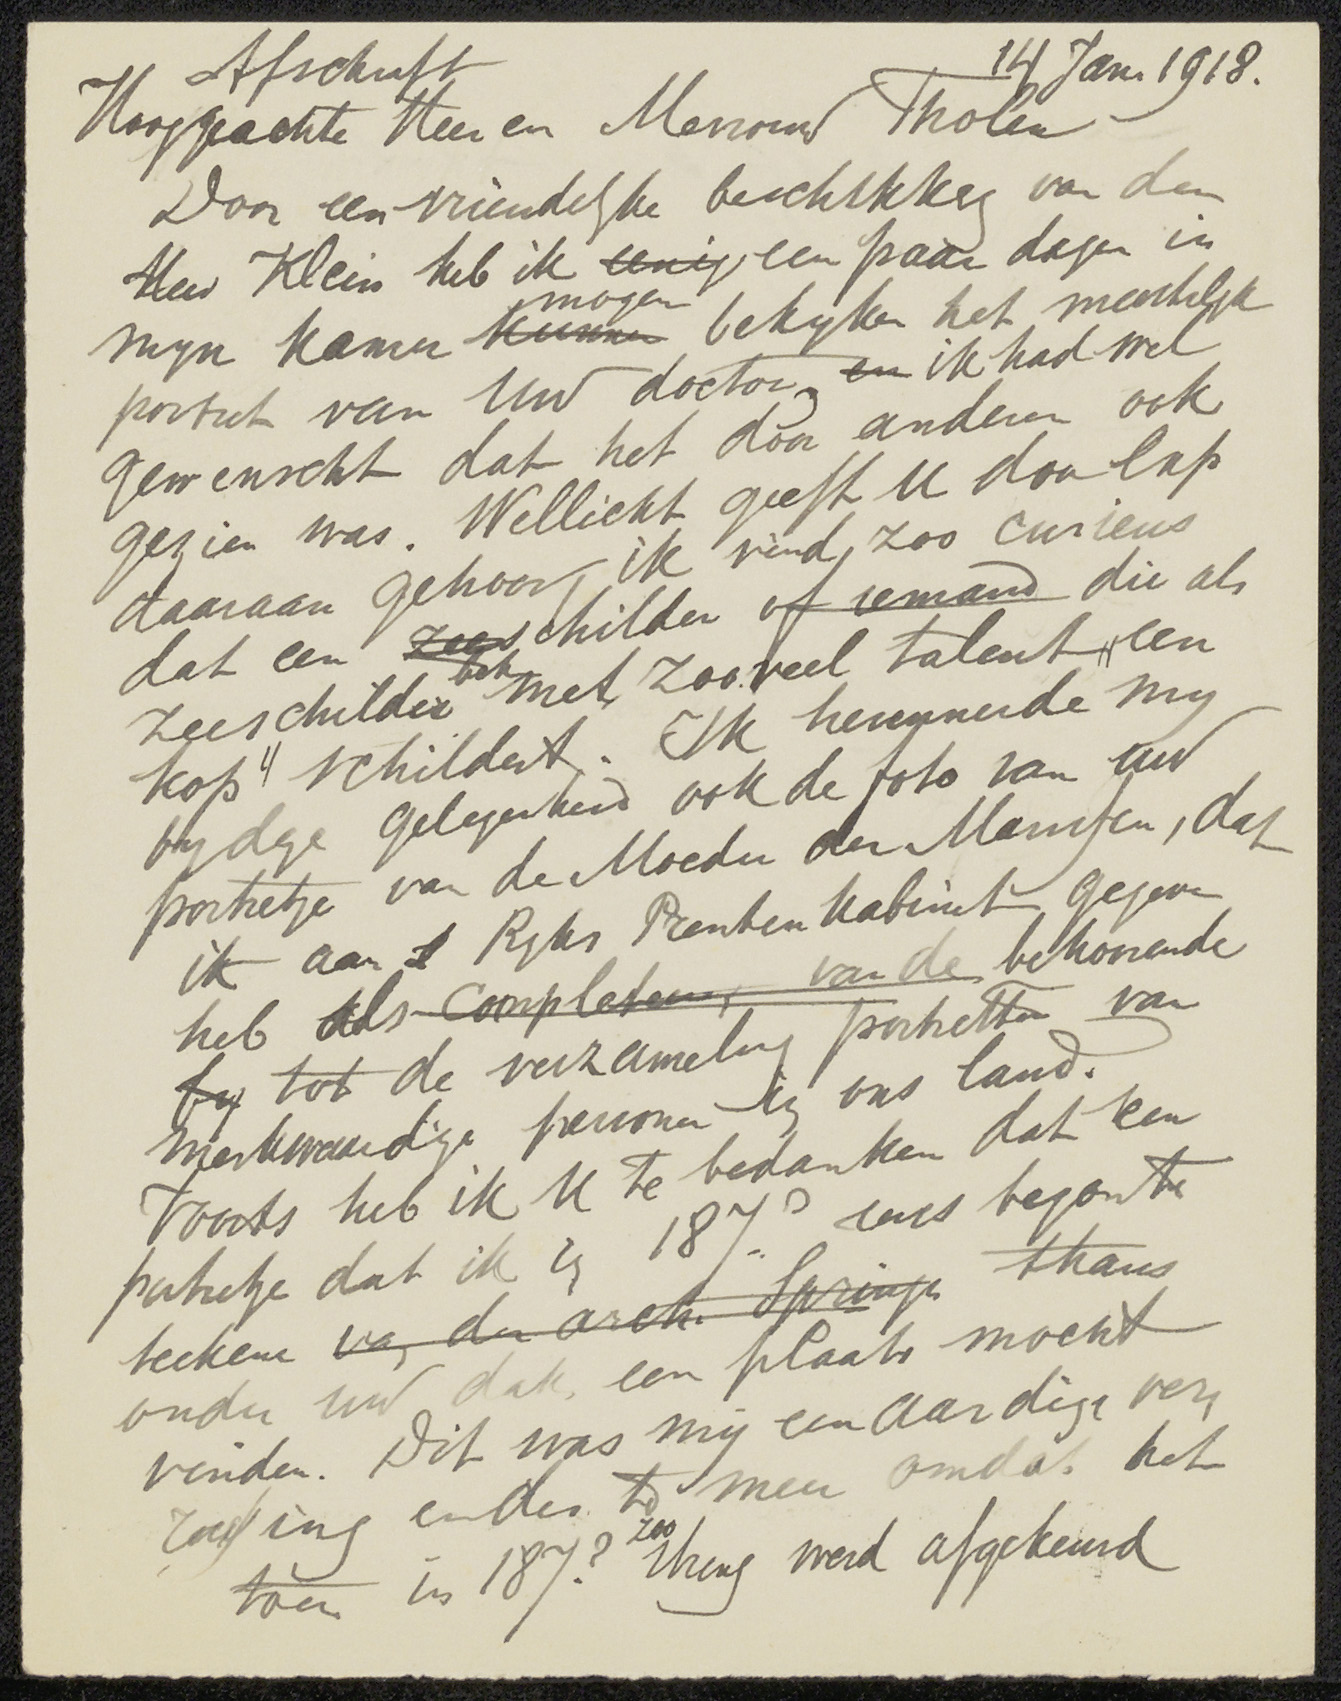 Afschrift 14 Jan. 1918.
Hooggeachte Heer en Mevrouw Tholen
Door een vriendelyke beschikking van den
Heer Klein heb ik eenig een paar dagen in
myn kamer kunnen mogen bekyken het meesterlyk
portret van Uw doctor, en ik had wel
gewenscht dat het door anderen ook
gezien was. Wellicht geeft U
daaraan gehoor, ik vind zoo curieus
dat een zeeschilder of iemand die als
zeeschilder met zooveel talent "een
kop" schildert. Ik herinnerde my
bydeze gelegenheid ook de foto van uw
portretje van de Moeder der Marissen, dat
ik aan 't Ryks Prentenkabinet gegeven
heb als van de behoorende
by tot de verzameling portretten van
merkwaardige personen in ons land.
Voorts heb ik U te bedanken dat een
portretje dat ik in 187? eens begon te
teekenen van den arch. Springer thans
onder uw dak een plaats mocht
vinden. Dit was my een aardige ver
rassing en des te meer omdat het
toen in 187? zoo streng werd afgekeurd